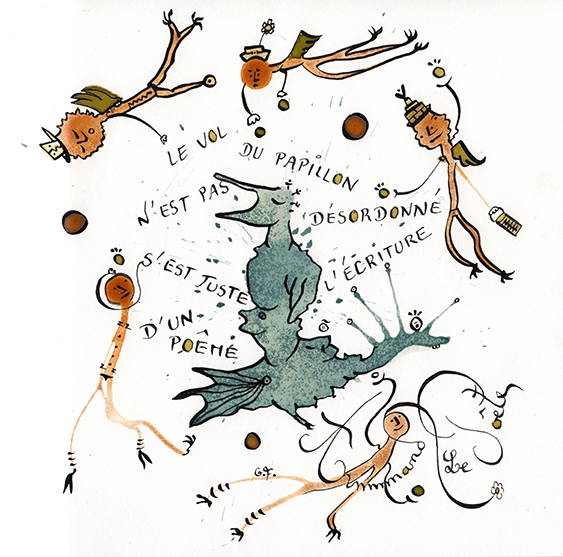 LE VOL DU PAPILLON
N'EST PAS DÉSORDONNÉ
S'EST JUSTE L'ÉCRITURE
D'UN
POÊME
Le
G.F.